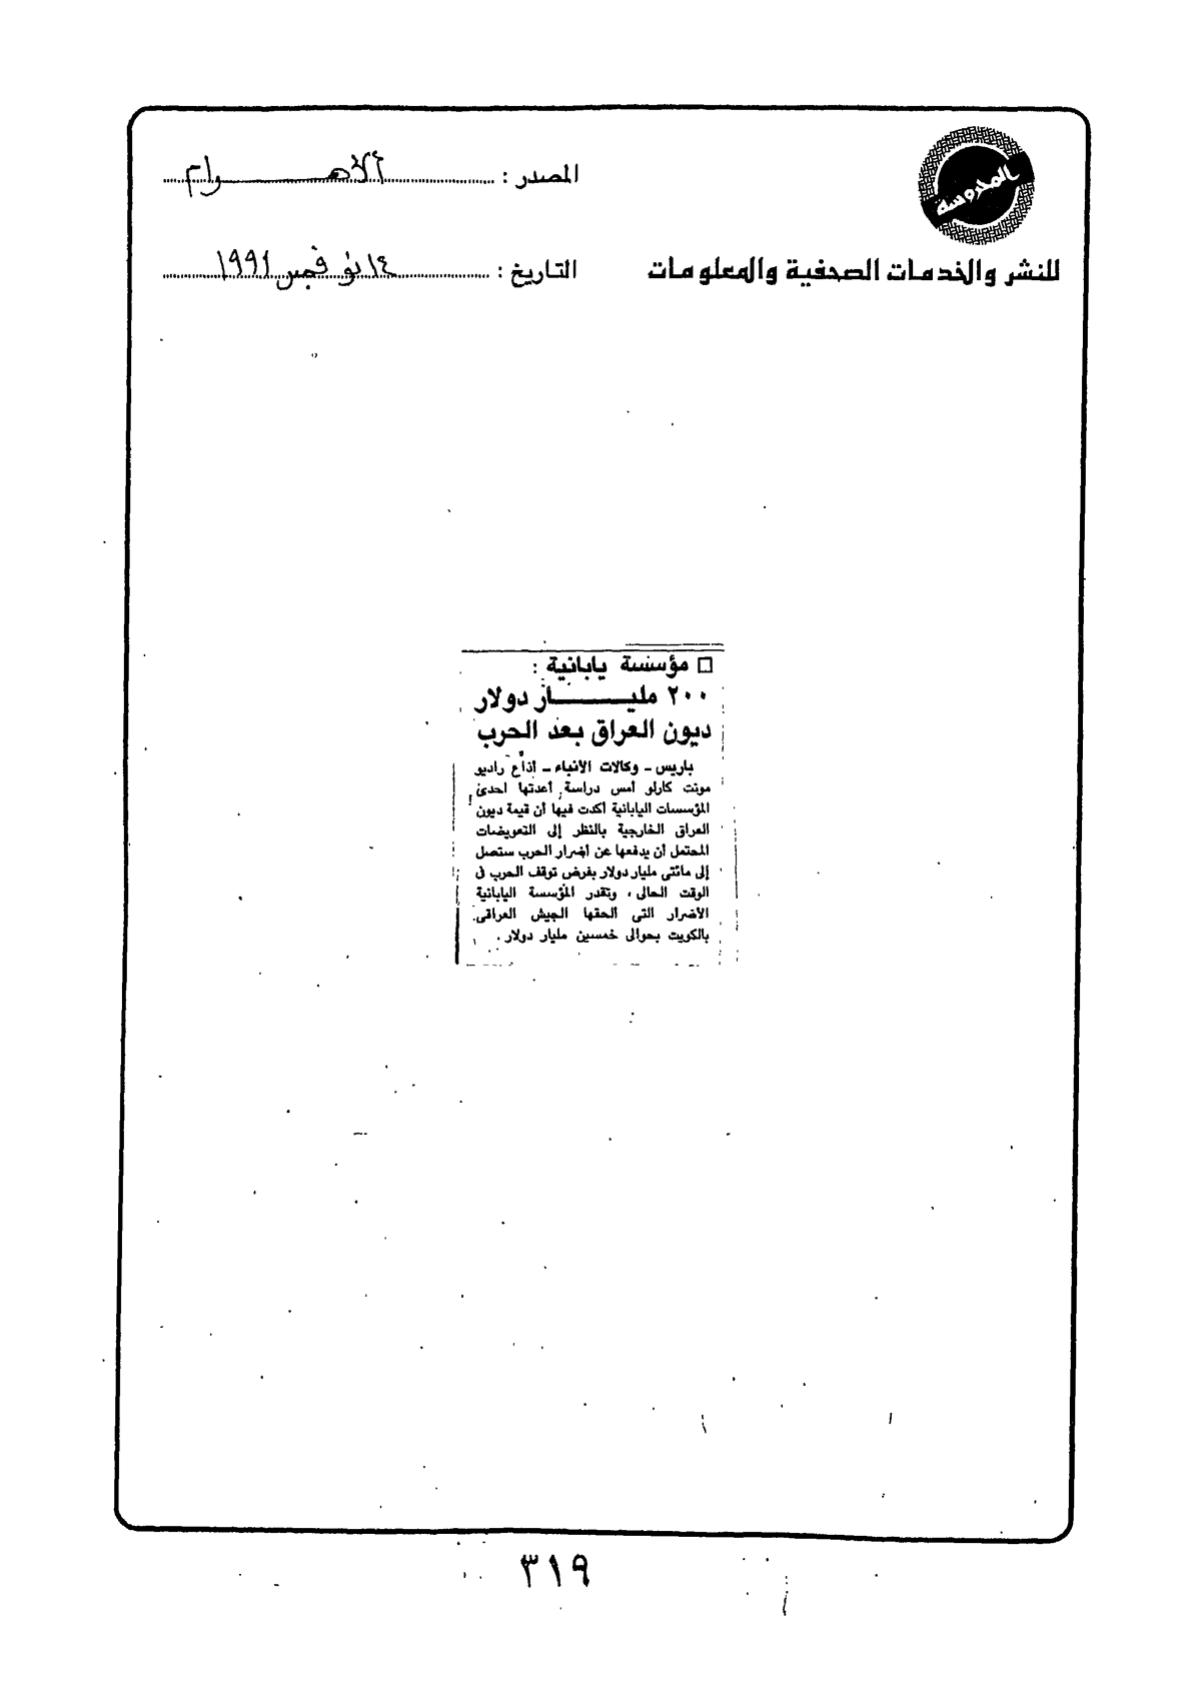 المحروسة
للنشر والخدمات الصحفية والمعلومات
المصدر : الأهرام
التاريخ : ١٤ نوفمبر ١٩٩١
□ مؤسسة يابانية :
٢٠٠ مليـــــار دولار
ديون العراق بعد الحرب
باريس - وكالات الأنباء - أذاع راديو
مونت كارلو أمس دراسة أعدتها احدى
المؤسسات اليابانية أكدت فيها أن قيمة ديون
العراق الخارجية بالنظر إلى التعويضات
المحتمل أن يدفعها عن أضرار الحرب ستصل
إلى مائتى مليار دولار بفرض توقف الحرب فى
الوقت الحالى ، وتقدر المؤسسة اليابانية
الأضرار التى ألحقها الجيش العراقى
بالكويت بحوالى خمسين مليار دولار .
٣١٩